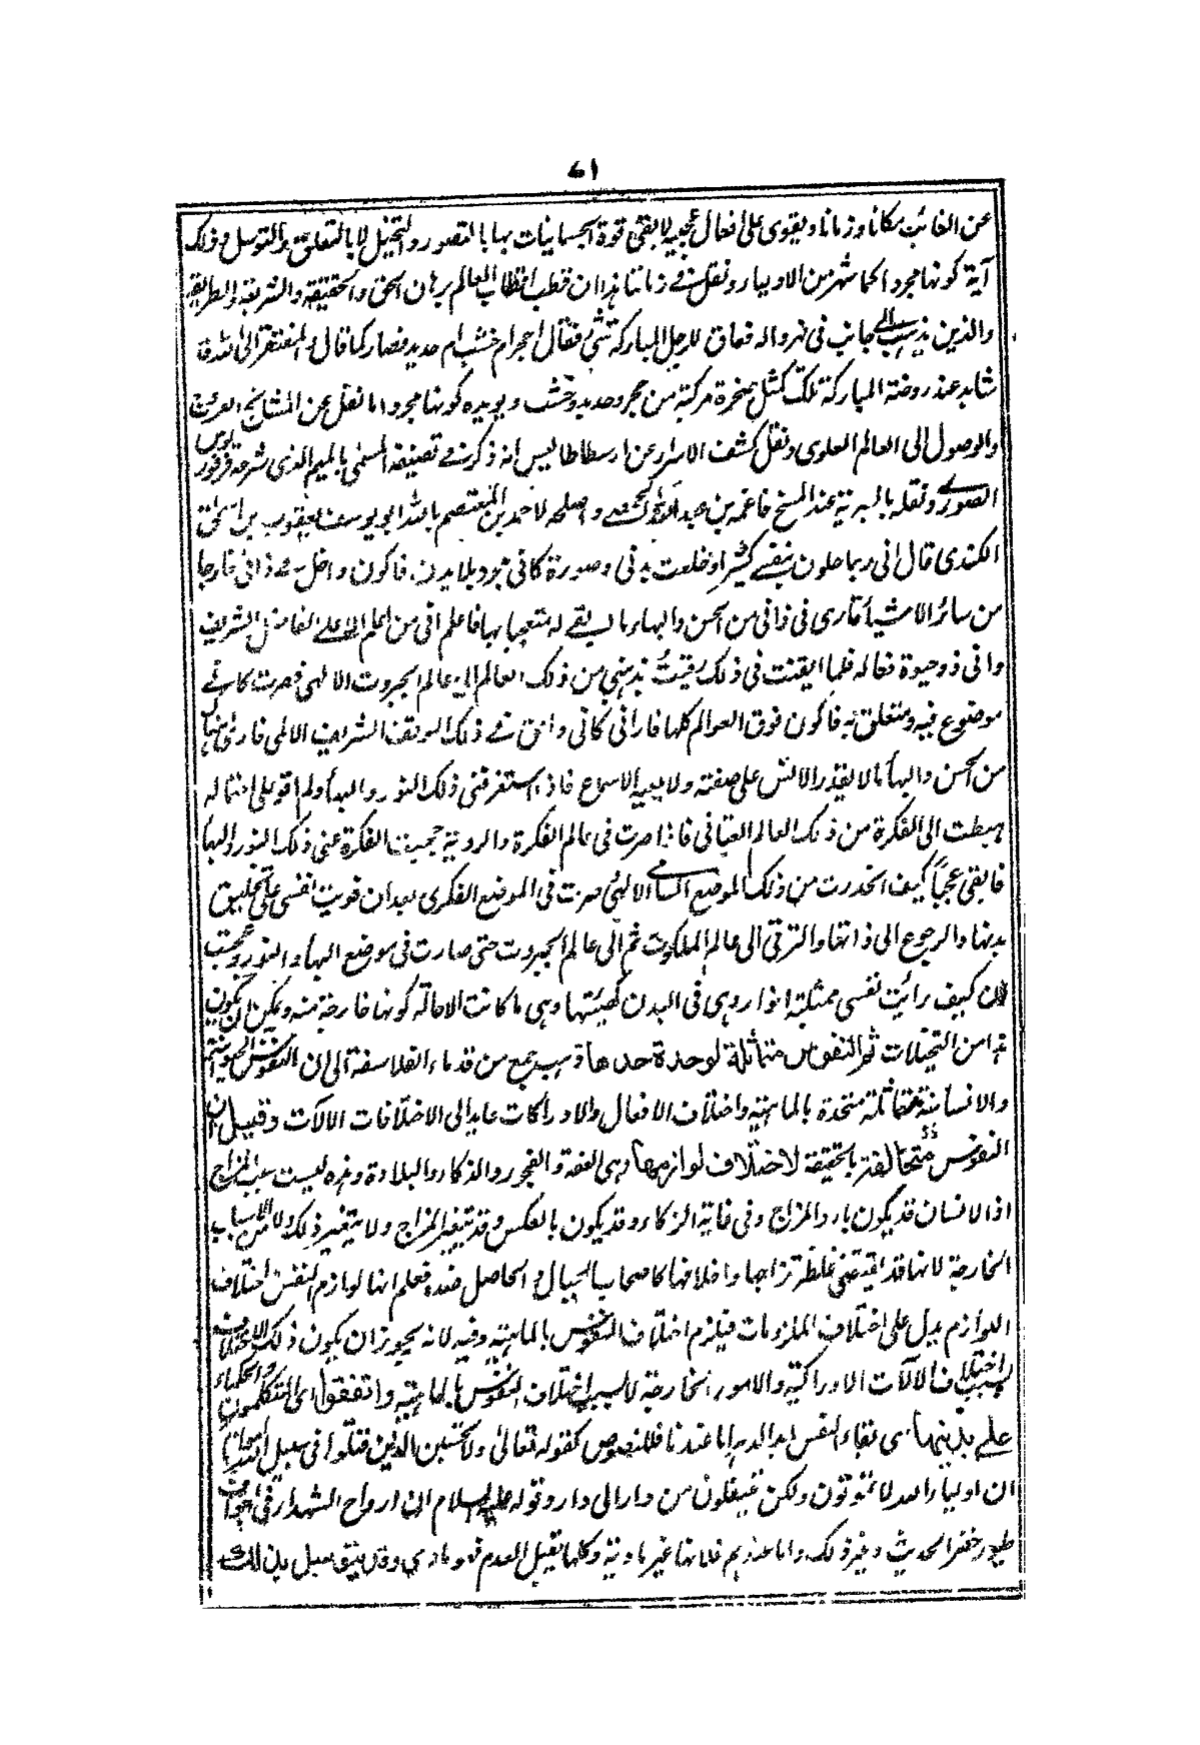 ٤١
عن الغائب مكانا وزمانا ويقوى على افعال عجيبة لا يفي قوة الجسمانيات بها بالتصور والتخيل لا بالتعلق والتوسل وذلك
آية كونها مجردا كما من الاولياء ونقل في زماننا هذا ان قطب اقطاب العالم برهان الحق والحقيقة والشريعة والطريقة
والذين جانب في نهرواله فعاق لرجل المباركة شئ فقال احجر ام خشب ام حديد فصار كما قال والمفتقر الى الله قد
شاهد عند روضة المباركة تلك كمثل صخرة مركبة من حجر وحديد وخشب ويؤيده كونها مجردا ما نقل عن المشايخ العروج
والوصول الى العالم العلوى ونقل كشف الاسرار عن ارسطاطاليس انه ذكر في تصنيفه المسمى بالميم الذى شرحه فرفوريوس
الصورى ونقله بالعبد المسيح بن عبد الله الحمصى واصلحه لاحمد بن المعتصم بالله ابو يوسف يعقوب بن اسحاق
الكندى قال انى ربما خلوت بنفسى كثيرا وخلعت بدنى وصورة كانى مجرد بلا بدن فاكون داخل فى ذاتى خارجا
من سائر الاشياء فارى فى ذاتى من الحسن والبهاء ما ابقى له متعجبا بها فاعلم انى من العالم الاعلى الفاضل الشريف
وانى ذو حيوة فعاله فلما ايقنت فى ذلك رقيت بذهنى من ذلك العالم الى عالم الجبروت الالهى فصرت كانى
موضوع فيه ومتعلق به فاكون فوق العوالم كلها فارانى كانى واقف فى ذلك الموقف الشريف الالهى فارى هناك
من الحسن والبهاء ما لا يقدر الالسن على صفته ولا يعيه الاسماع فاذا استغرقنى ذلك النور والبهاء ولم اقو على احتماله
هبطت الى الفكرة من ذلك العالم العقلانى فاذا صرت فى عالم الفكرة والروية حجبت الفكرة عنى ذلك النور والبهاء
فابقى عجبا كيف انحدرت من ذلك الموضع السامى الالهى صرت فى الموضع الفكرى بعد ان قويت نفسى على تخليق
بدنها والرجوع الى ذاتها والترقى الى عالم الملكوت ثم الى عالم الجبروت حتى صارت فى موضع البهاء والنور وعجبت
ان كيف رأيت نفسى ممتلئة انوار وهى فى البدن كهيئتها وهى ما كانت الاحالة كونها خارجة منه ويمكن ان يكون
هذا من التخيلات ثم النفوس متماثلة لوحدة حدها ذهب جمع من قدماء الفلاسفة الى ان النفوس الحيوانية
والانسانية متماثلة متحدة بالماهية واختلاف الافعال والادراكات عايد الى الاختلافات الالآت وقيل ان
النفوس متخالفة بالحقيقة لاختلاف لوازمها وهى العفة والفجور والذكاء والبلادة وغيره ليست بسبب المزاج
اذ الانسان قد يكون بارد المزاج وفى غاية الذكاء وقد يكون بالعكس وقد يتغير المزاج ولا يتغير ذلك ولا من الاسباب
الخارجة لانها قد يقتضى غلظة مزاجا واخلاقها كاصحاب الجبال والحاصل ضده فعلم انها لوازم النفس اختلاف
اللوازم يدل على اختلاف الملزومات فيلزم اختلاف النفوس بالماهية وفيه لانه يجوز ان يكون ذلك الاختلاف
بسبب اختلاف الآلات الادراكية والامور الخارجة لا بسبب اختلاف النفوس بالماهية واتفقوا اى المتكلمون والحكماء
على بقائها اى بقاء النفس ابد الدهر اما عندنا فللنصوص كقوله تعالى ولا تحسبن الذين قتلوا فى سبيل الله امواتا
ان اولياء الله لا يموتون ولكن ينتقلون من دار الى دار وقوله عليه السلام ان ارواح الشهداء فى اجواف
طيور خضر الحديث وغير ذلك واما عندهم فلانها غير مادية وكلما يقبل العدم فهو مادى وقد سبق سبيل ذلك